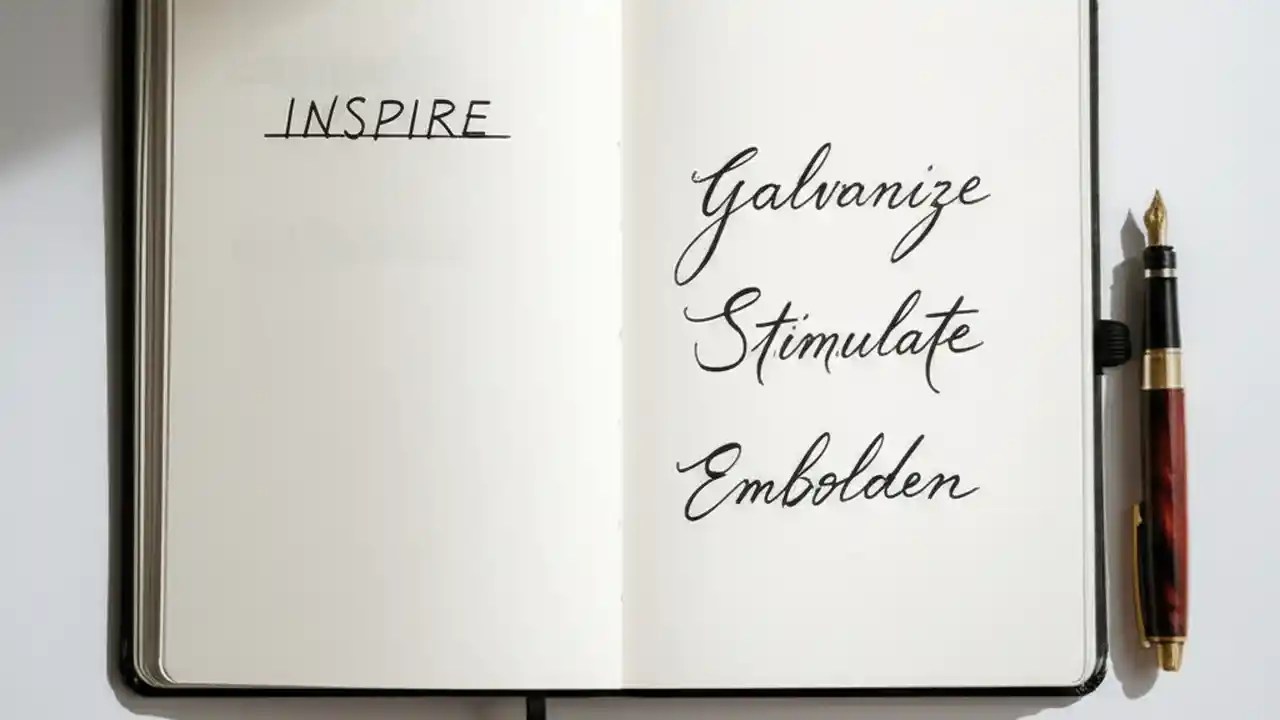 INSPIRE
Galvanize
Stimulate
Embolden